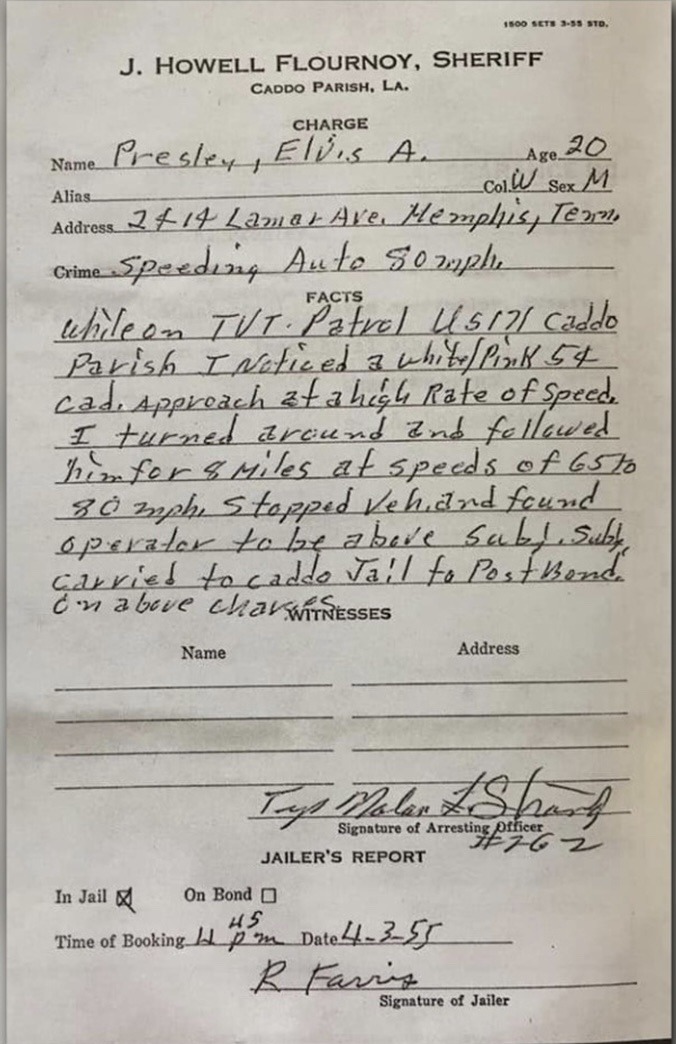 1500 SETS 3-55 STD.
J. HOWELL FLOURNOY, SHERIFF
CADDO PARISH, LA.
CHARGE
Name Presley, Elvis A. Age 20
Alias Col. W Sex M
Address 2414 Lamar Ave. Memphis, Tenn.
Crime Speeding Auto 80 mph.
FACTS
While on Patrol US 171 Caddo
Parish I Noticed a white/Pink 54
Cad. Approach at a high Rate of Speed.
I turned around and followed
him for 8 Miles at speeds of 65 to
80 mph. Stopped Veh. and found
operator to be above Subj. Subj.
carried to Caddo Jail to Post Bond.
On above charges.
WITNESSES
Name Address
Signature of Arresting Officer
#262
JAILER'S REPORT
In Jail ☒ On Bond ☐
45
Time of Booking pm Date 4-3-55
R Farris
Signature of Jailer